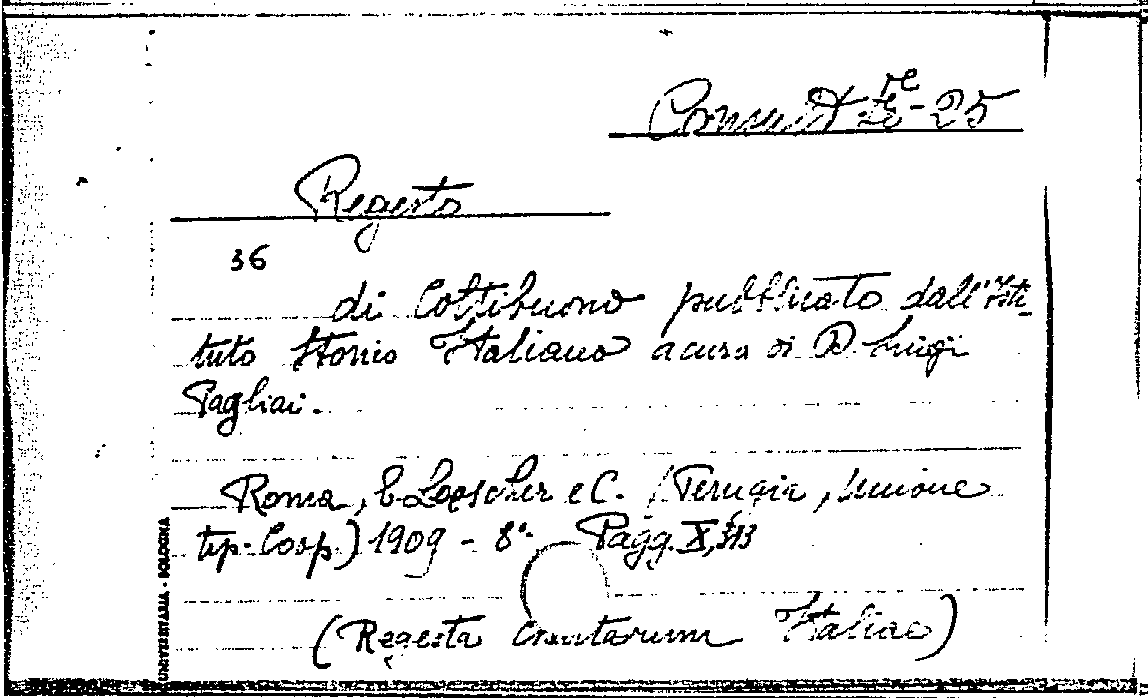 Consult Ze re - 25
Regesto
36
di Coltibuono pubblicato dall'Isti-
tuto Storico Italiano a cura di D. Luigi
Pagliai.
Roma, E. Loescher e C. (Perugia, Unione
tip. Coop.) 1909 - 8°. Pagg. X, 313
(Regesta Chartarum Italiae)
UNIVERSITARIA - BOLOGNA